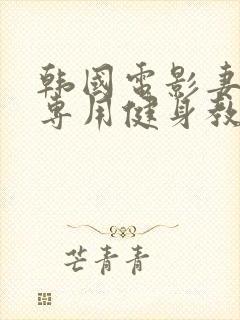 韩国电影妻
专用健身教
芒青青